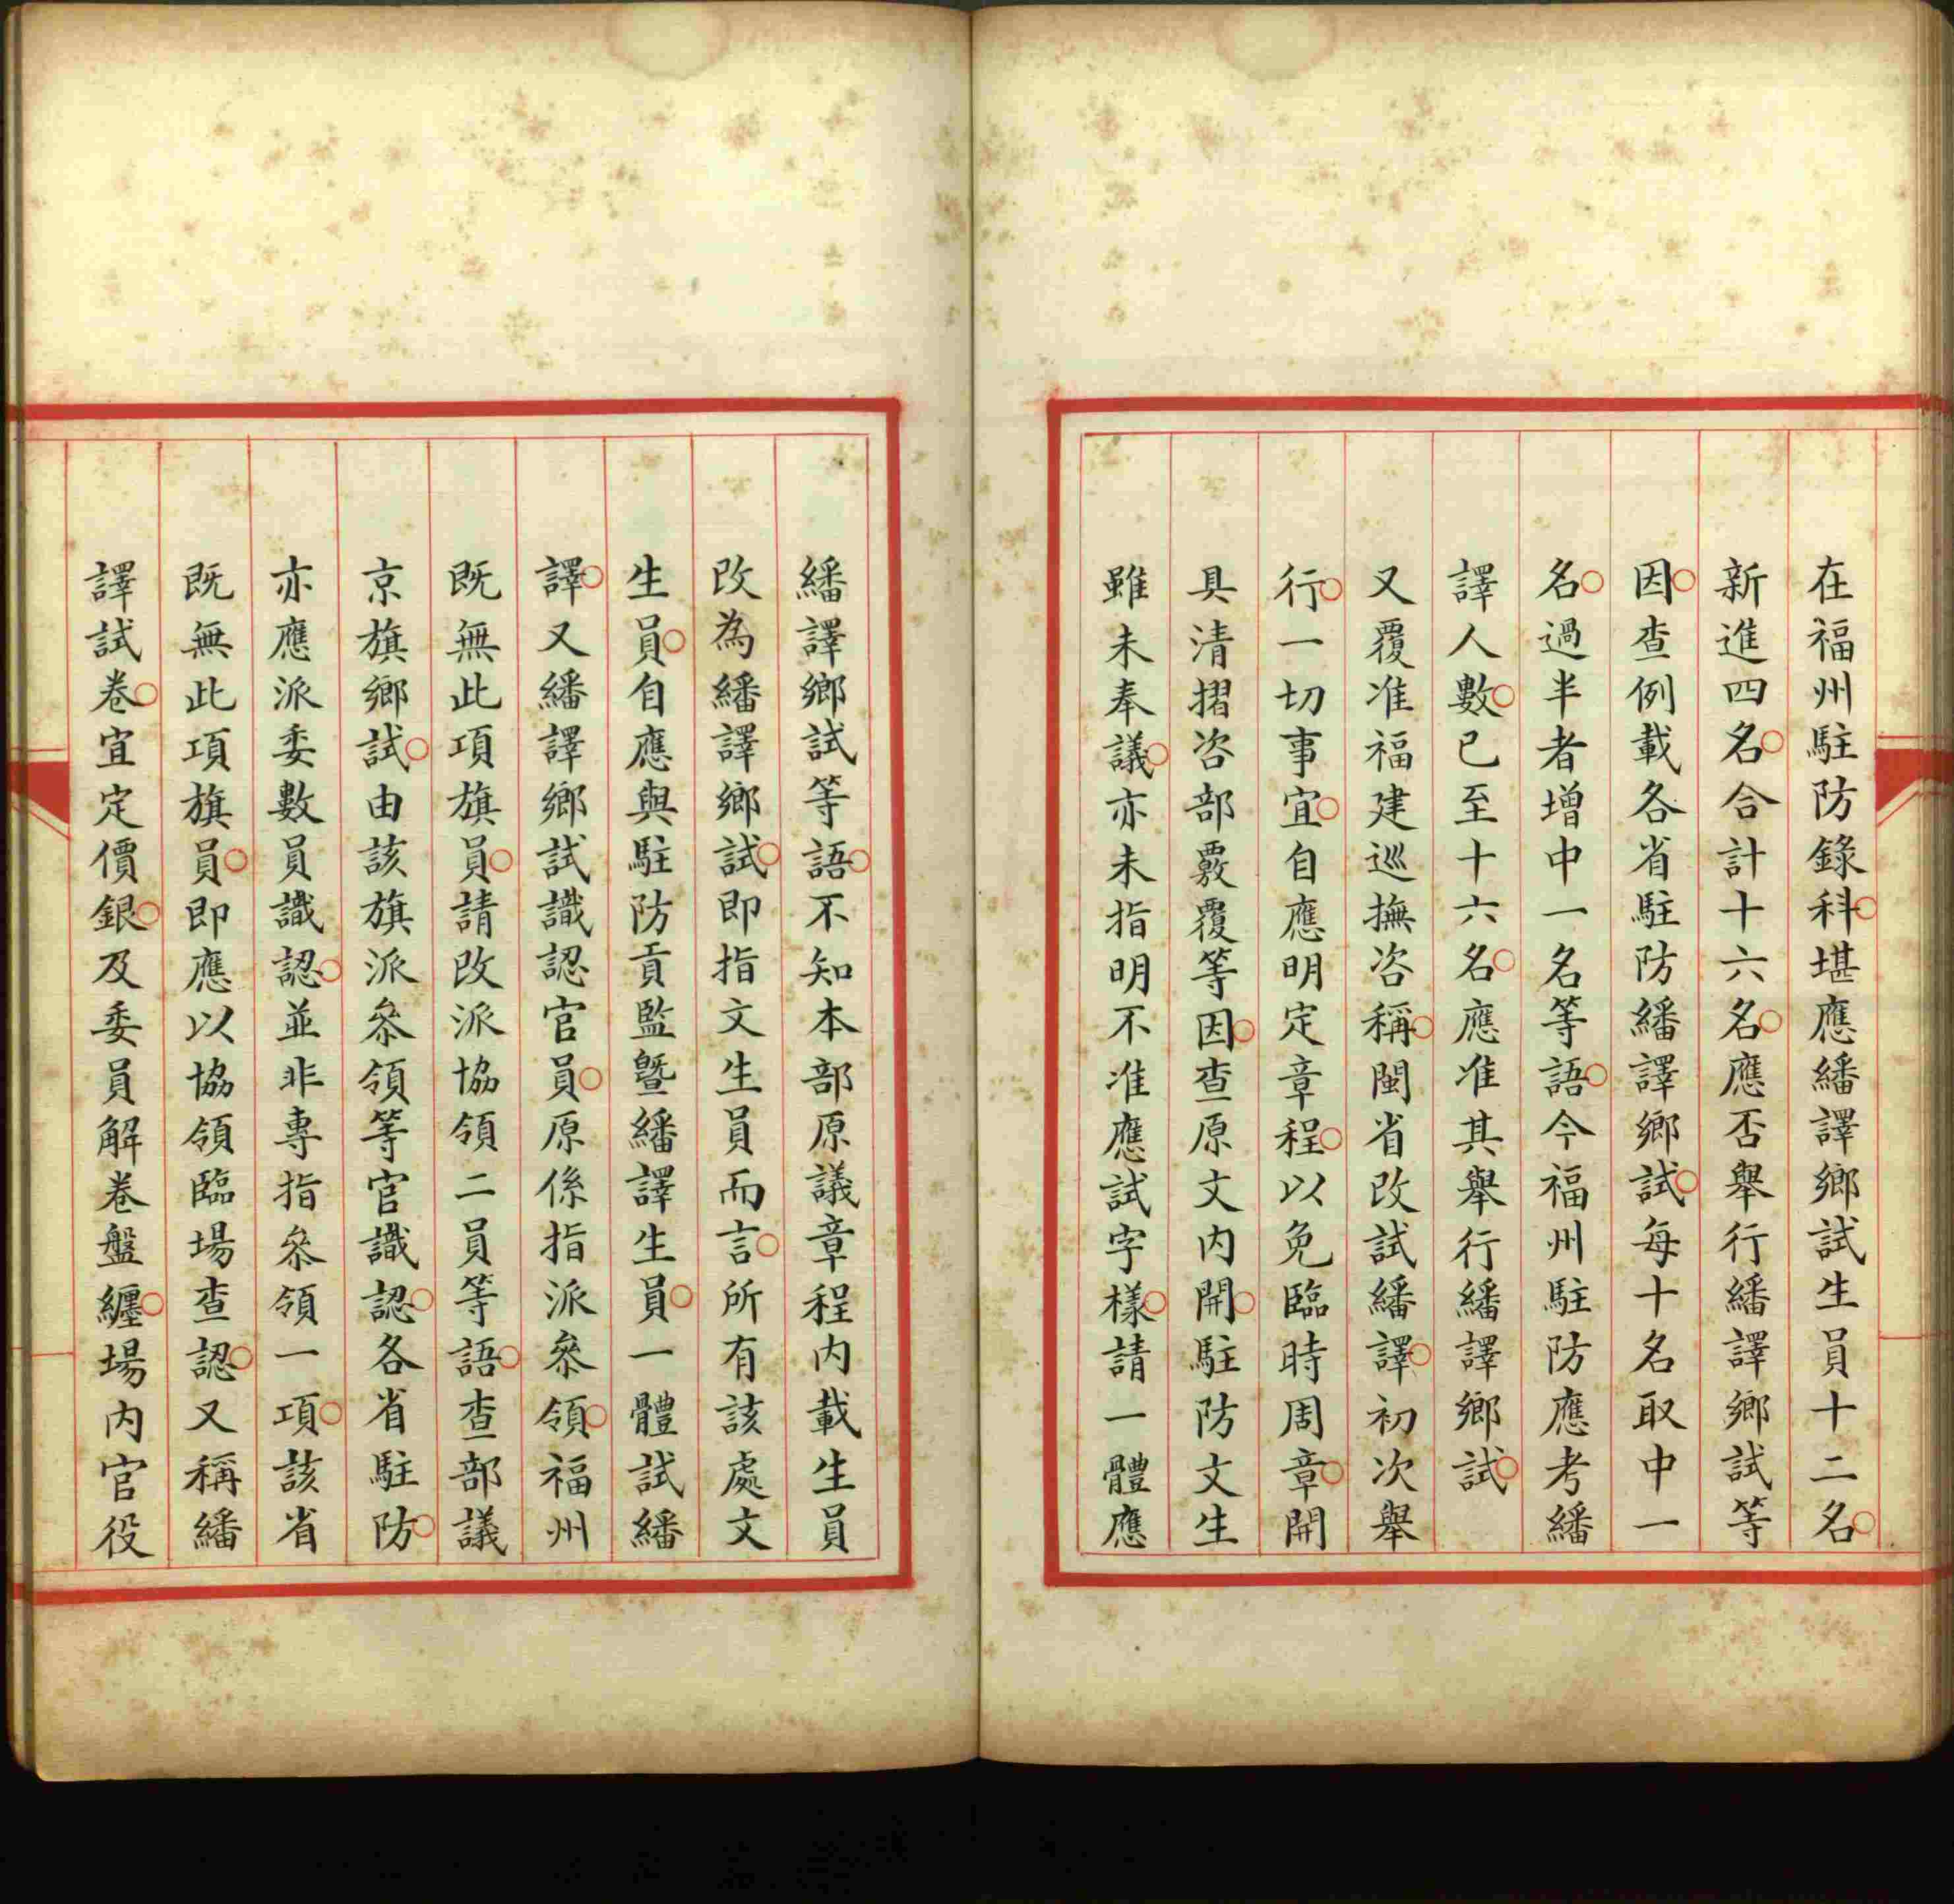 在福州駐防錄科堪應繙譯鄉試生員十二名
新進四名合計十六名應否舉行繙譯鄉試等
因查例載各省駐防繙譯鄉試每十名取中一
名過半者增中一名等語今福州駐防應考繙
譯人數已至十六名應准其舉行繙譯鄉試
又覆准福建巡撫咨稱閩省改試繙譯初次舉
行一切事宜自應明定章程以免臨時周章開
具清摺咨部覈覆等因查原文內開駐防文生
雖未奉議亦未指明不准應試字樣請一體應
繙譯鄉試等語不知本部原議章程內載生員
改為繙譯鄉試即指文生員而言所有該處文
生員自應與駐防貢監曁繙譯生員一體試繙
譯又繙譯鄉試識認官員原係指派叅領福州
既無此項旗員請改派協領二員等語查部議
京旗鄉試由該旗派叅領等官識認各省駐防
亦應派委數員識認並非專指叅領一項該省
既無此項旗員即應以協領臨場查認又稱繙
譯試卷宜定價銀及委員解卷盤纏場內官役